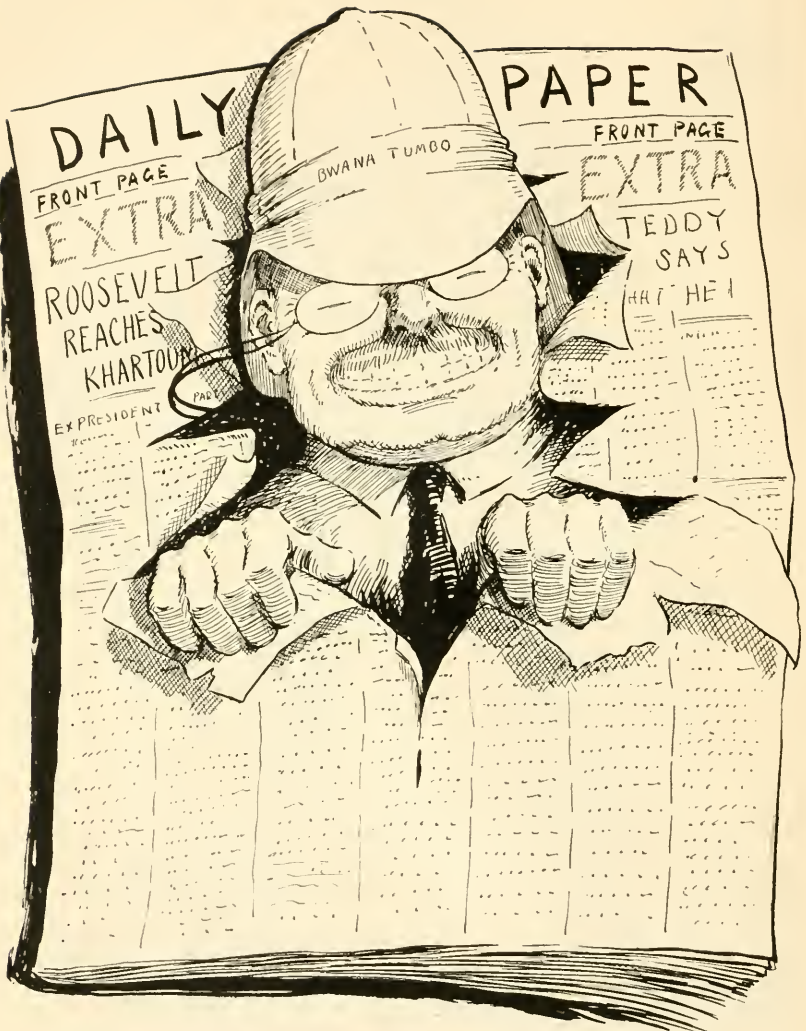 DAILY PAPER
FRONT PAGE
EXTRA
ROOSEVELT
REACHES
KHARTOUM
PART
EX PRESIDENT
BWANA TUMBO
FRONT PAGE
EXTRA
TEDDY
SAYS
HE